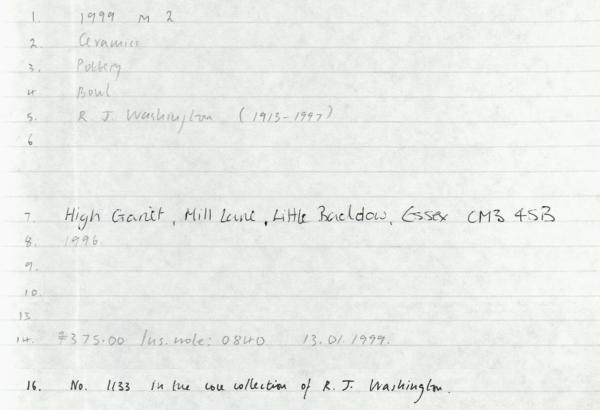 1. 1999 M 2
2. Ceramics
3. Pottery
4. Bowl
5. R J Washington (1913-1997)
6
7. High Garret, Mill Lane, Little Baddow, Essex CM3 4SB
8. 1996.
9.
10.
13
14. £375.00 Ins. note: 0840 13.01.1999.
16. No. 1133 in the core collection of R. J. Washington.